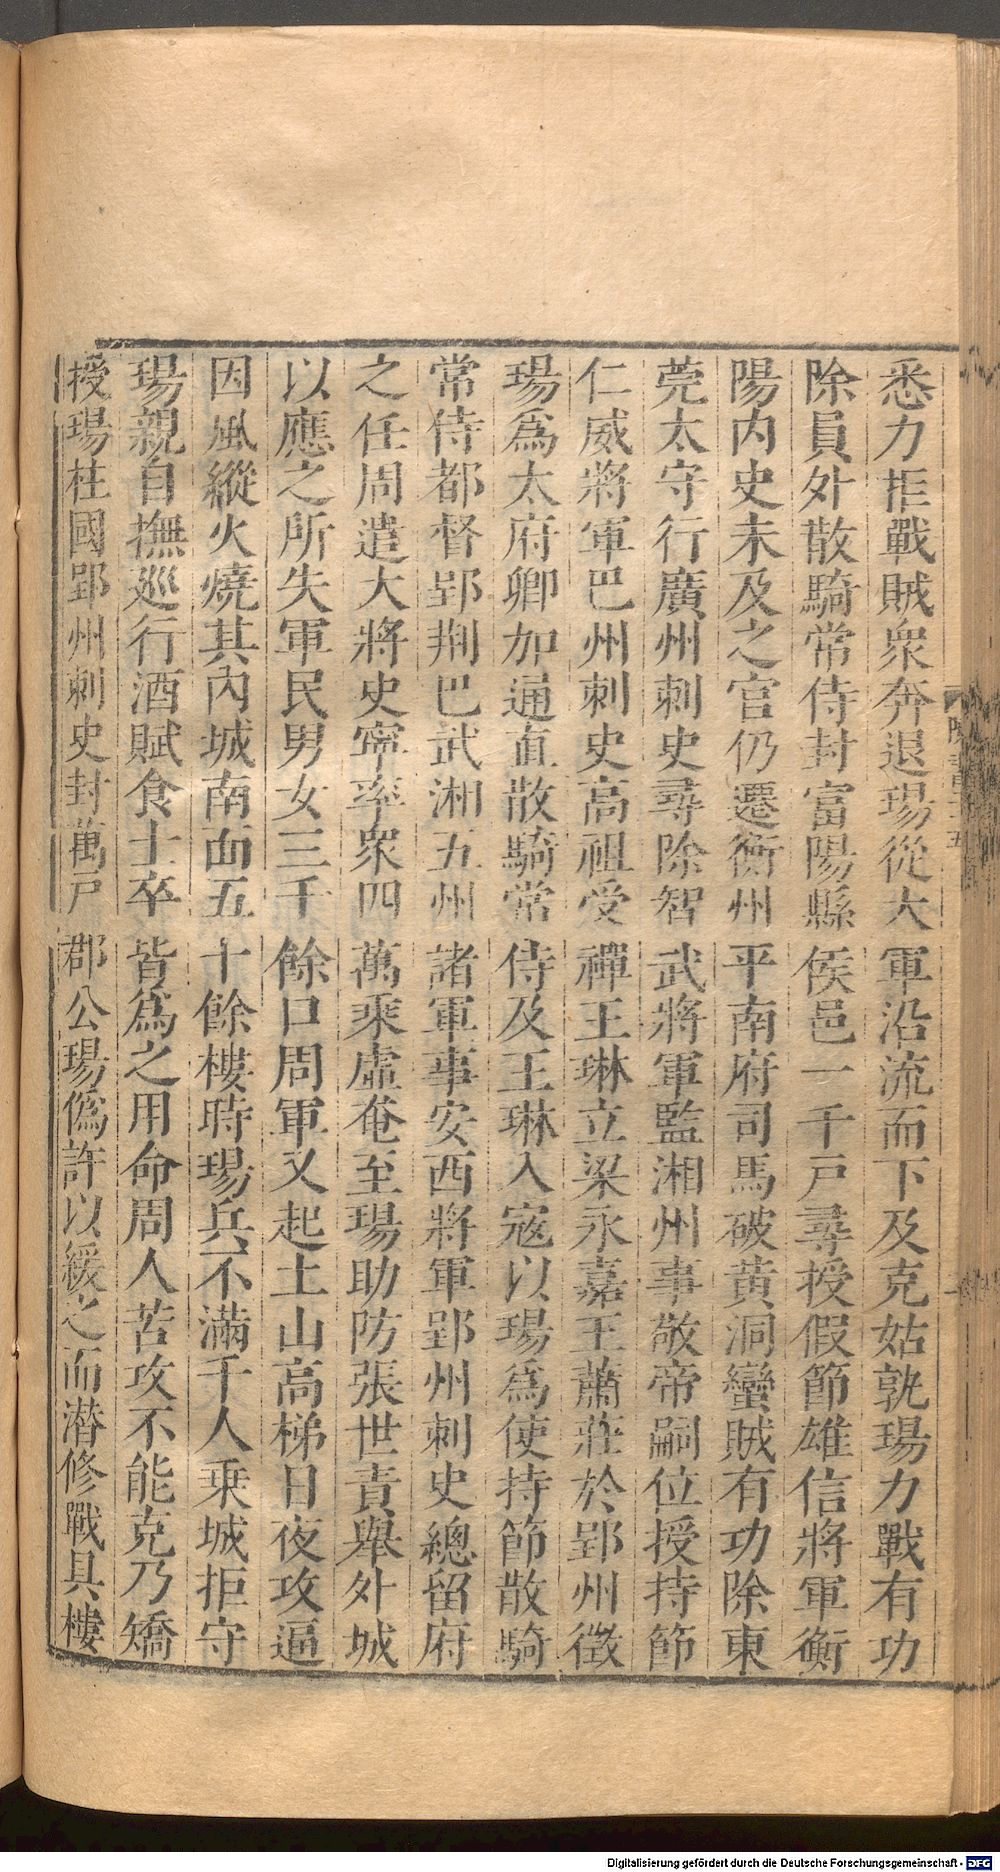 悉力拒戰賊衆奔退瑒從大軍沿流而下及克姑孰瑒力戰有功
除員外散騎常侍封富陽縣侯邑一千戸尋授假節雄信將軍衡
陽内史未及之官仍遷衡州平南府司馬破黃洞蠻賊有功除東
莞太守行廣州刺史尋除智武將軍監湘州事敬帝嗣位授持節
仁威將軍巴州刺史高祖受禪王琳立梁永嘉王蕭莊於郢州徵
瑒爲太府卿加通直散騎常侍及王琳入寇以瑒爲使持節散騎
常侍都督郢荆巴武湘五州諸軍事安西將軍郢州刺史總留府
之任周遣大將史寧率衆四萬乘虛奄至瑒助防張世貴舉外城
以應之所失軍民男女三千餘口周軍又起土山高梯日夜攻逼
因風縱火燒其内城南面五十餘樓時瑒兵不滿千人乘城拒守
瑒親自撫巡行酒賦食士卒皆爲之用命周人苦攻不能克乃矯
授瑒柱國郢州刺史封萬戸郡公瑒僞許以緩之而潜修戰具樓
Digitalisierung gefördert durch die Deutsche Forschungsgemeinschaft - DFG